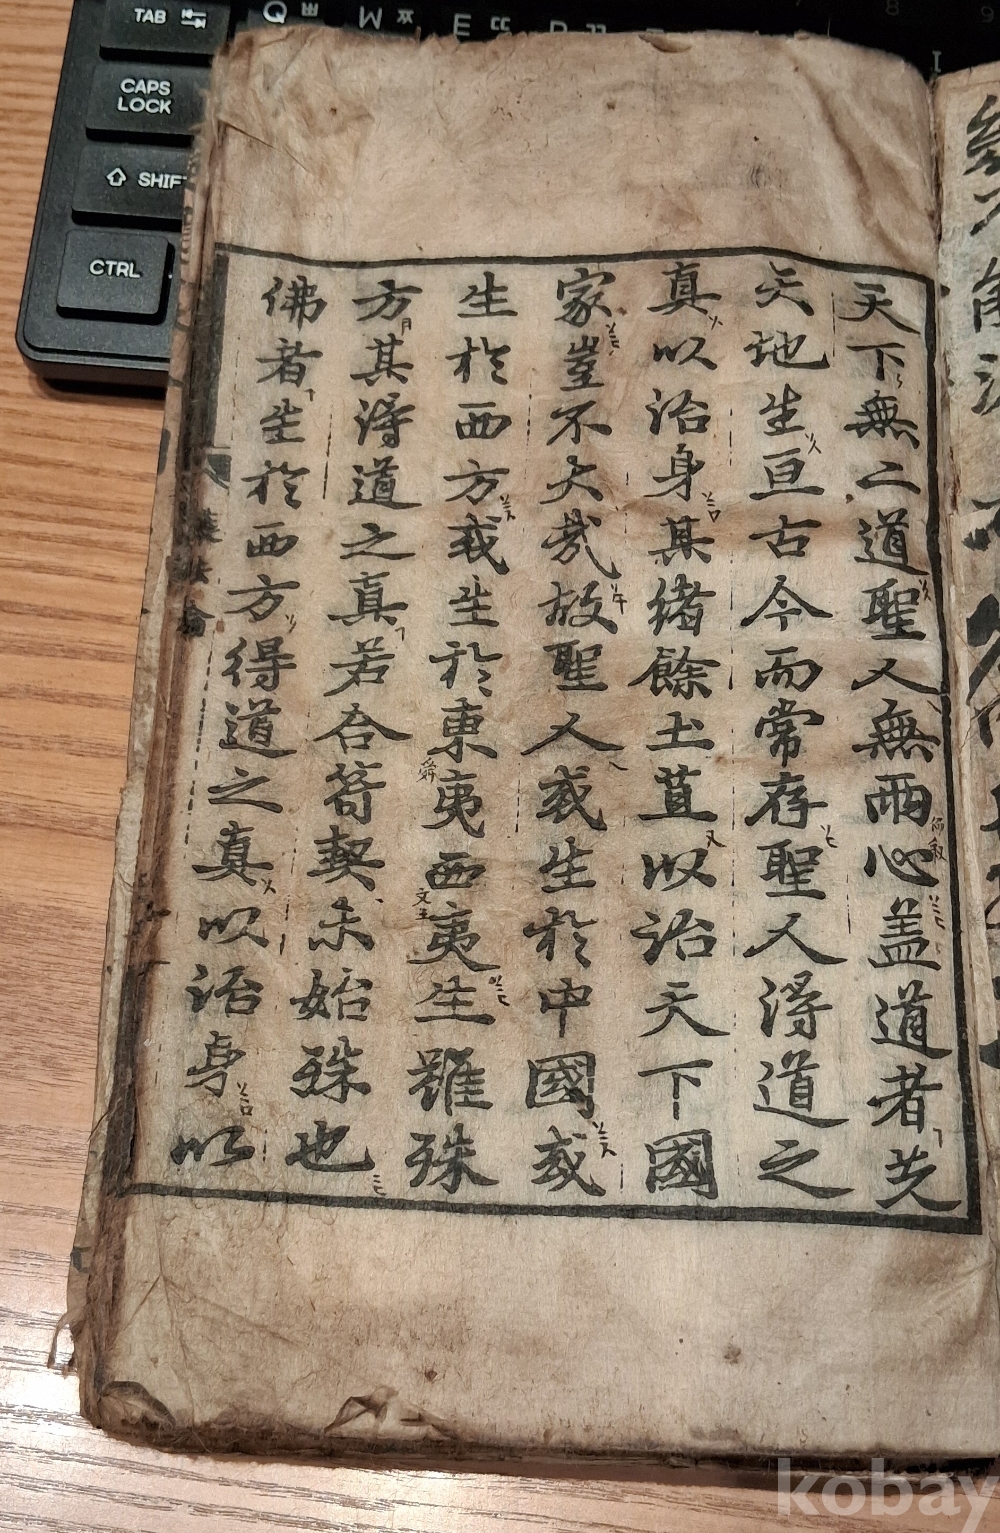 天下無二道聖人無兩心盖道者先
天地生亘古今而常存聖人得道之
真以治身其緖餘土苴以治天下國
家豈不大哉故聖人或生於中國或
生於西方或生於東夷西夷生雖殊
方其得道之真若合符契未始殊也
佛者生於西方得道之真以治身以
舜
文王
TAB
CAPS LOCK
SHIFT
CTRL
Q ㅃ
kobay